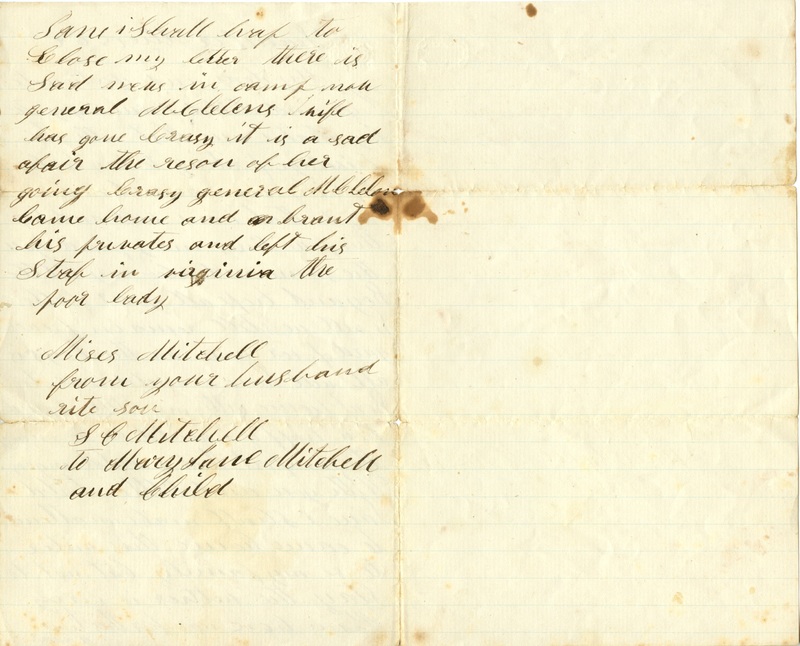 Jane i Shall haf to
Close my letter there is
Said news in camp now
general McClelens wife
has gone Crasy it is a sad
afair the reson of her
going Crasy general McClelen
Came home and brout
his privates and left his
Staf in virginia the
poor lady
Mises Mitchell
from your husband
rite son
S C Mitchell
to Mary Jane Mitchell
and Child